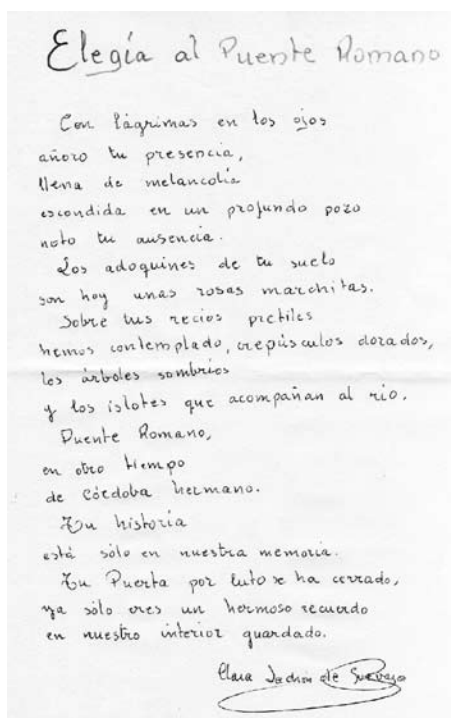 Elegía al Puente Romano
Con lágrimas en los ojos
añoro tu presencia,
llena de melancolía
escondida en un profundo pozo
noto tu ausencia.
Los adoquines de tu suelo
son hoy unas rosas marchitas.
Sobre tus recios pretiles
hemos contemplado, crepúsculos dorados,
los árboles sombríos
y los islotes que acompañan al río.
Puente Romano,
en otro tiempo
de Córdoba hermano.
Tu historia
está sólo en nuestra memoria.
Tu Puerta por luto se ha cerrado,
ya sólo eres un hermoso recuerdo
en nuestro interior guardado.
Clara Ladrón de Guevara